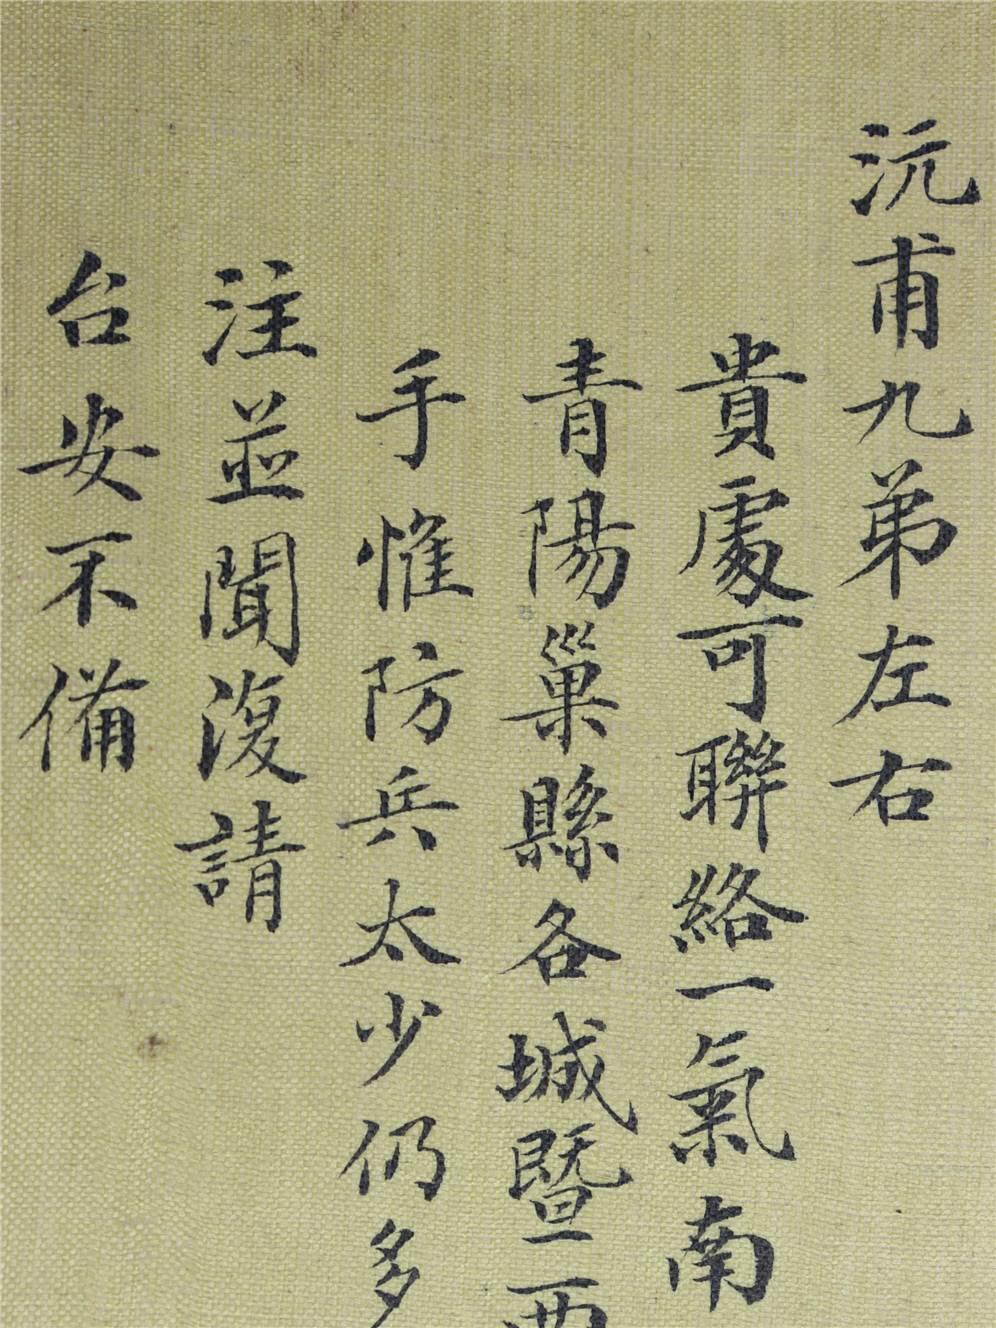 沅甫九弟左右
貴處可聯絡一氣南
青陽巢縣各城暨西
手惟防兵太少仍多
注並聞復請
台安不備